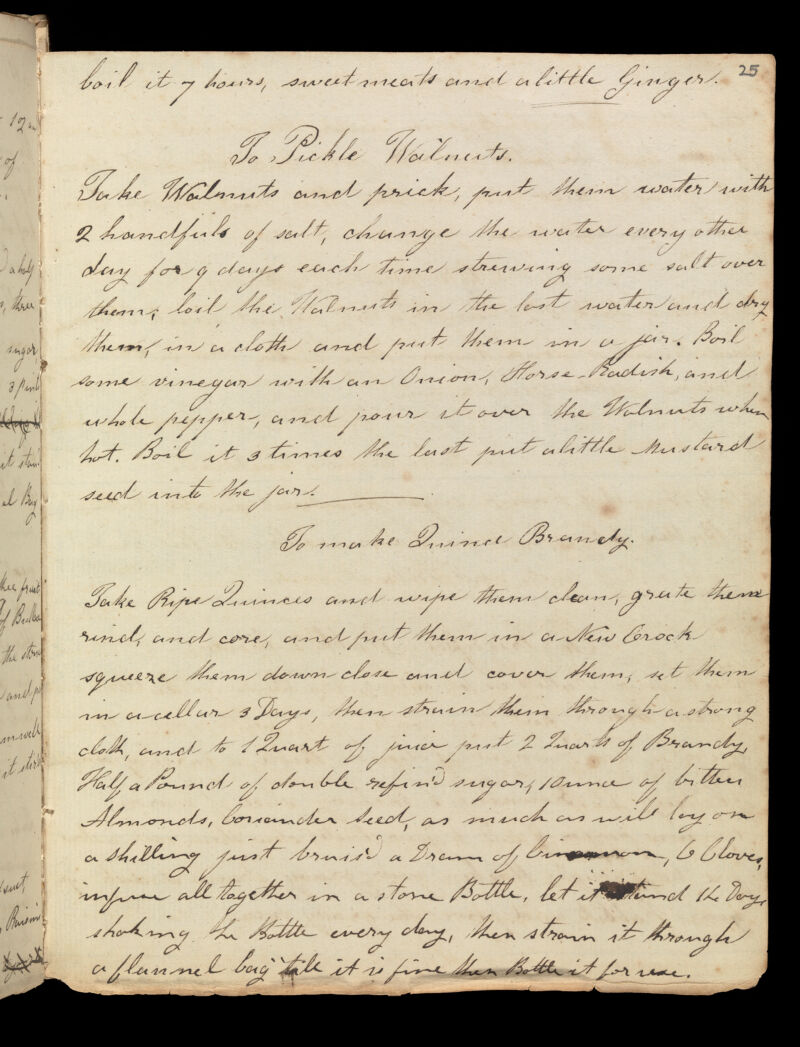 25
boil it 7 hours, sweetmeats and a little Ginger.
To Pickle Walnuts.
Take Walnuts and prick, put them water with
2 handfuls of salt, change the water every other
day for 9 days each time strewing some salt over
them; boil the Walnuts in the last water and dry
them, in a cloth and put them in a jar. Boil
some vinegar with an Onion, Horse-Radish, and
whole pepper, and pour it over the Walnuts when
hot. Boil it 3 times the last put a little Mustard
seed into the jar.
To make Quince Brandy.
Take Ripe Quinces and wipe them clean, grate them
rind, and core, and put them in a New Crock
squeeze them down close and cover them, set them
in a cellar 3 Days, then strain them through a strong
cloth, and to 1 Quart of juice put 2 Quarts of Brandy,
Half a Pound of double refin'd sugar, 1 ounce of bitter
Almonds, Coriander Seed, as much as will lay on
a shilling just bruis'd a Dram of Cinnamon, 6 Cloves,
infuse all together in a stone Bottle, let it stand Days,
shaking the Bottle every day, then strain it through
a flannel bag till it is fine then Bottle it for use.
12
of
a half
three
sugar
3 pint
it stand
fruit
of
the
and
it
suet